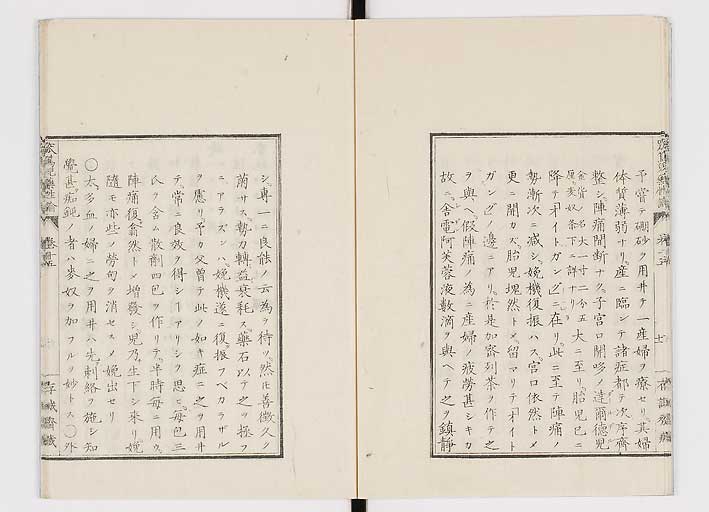 予嘗テ硼砂ヲ用井テ一産婦ヲ療セリ其婦
体質薄弱ナリ産ニ臨ンテ諸症都テ次序齊
整シ陣痛間断ナク子宮口開哆ノ達爾徳児
金貨ノ名大一寸二分五
厘麦奴条下ニ詳ナリ
大ニ至リ胎児已ニ
降テオイトガングニ在リ此ニ至テ陣痛ノ
勢漸次ニ減シ娩機復振ハス宮口依然トメ
更ニ開カス胎児塊然トメ留マリテオイト
ガングノ邊ニアリ於是加密列茶ヲ作テ之
ヲ與ヘ假陣痛ノ為ニ産婦ノ疲勞甚シキカ
故ニ舎電阿芙蓉液數滴ヲ與ヘテ之ヲ鎮静
シ專一ニ良能ノ云為ヲ待ツ然ル善徴久ノ
菌サス勢力轉益衰耗ス藥石以テ之ヲ拯フ
ニアラズンハ娩機遂ニ復振フベカラザル
ヲ慮リ予カ父曽テ此ノ如キ症ニ之ヲ用井
テ常ニ良效ヲ得シヿアリシヲ思ヒ毎包三
氏ヲ含ム散剤四包ヲ作リテ半時毎ニ用ウ
陣痛復翕然トメ増發シ児乃生下シ来リ娩
隨モ亦些ノ勞匈ヲ消セスメ娩出セリ
〇太多血ノ婦ニ之ヲ用井ハ先刺絡ヲ施シ知
覺甚痴鈍ノ者ハ麥奴ヲ加フルヲ妙トス〇外